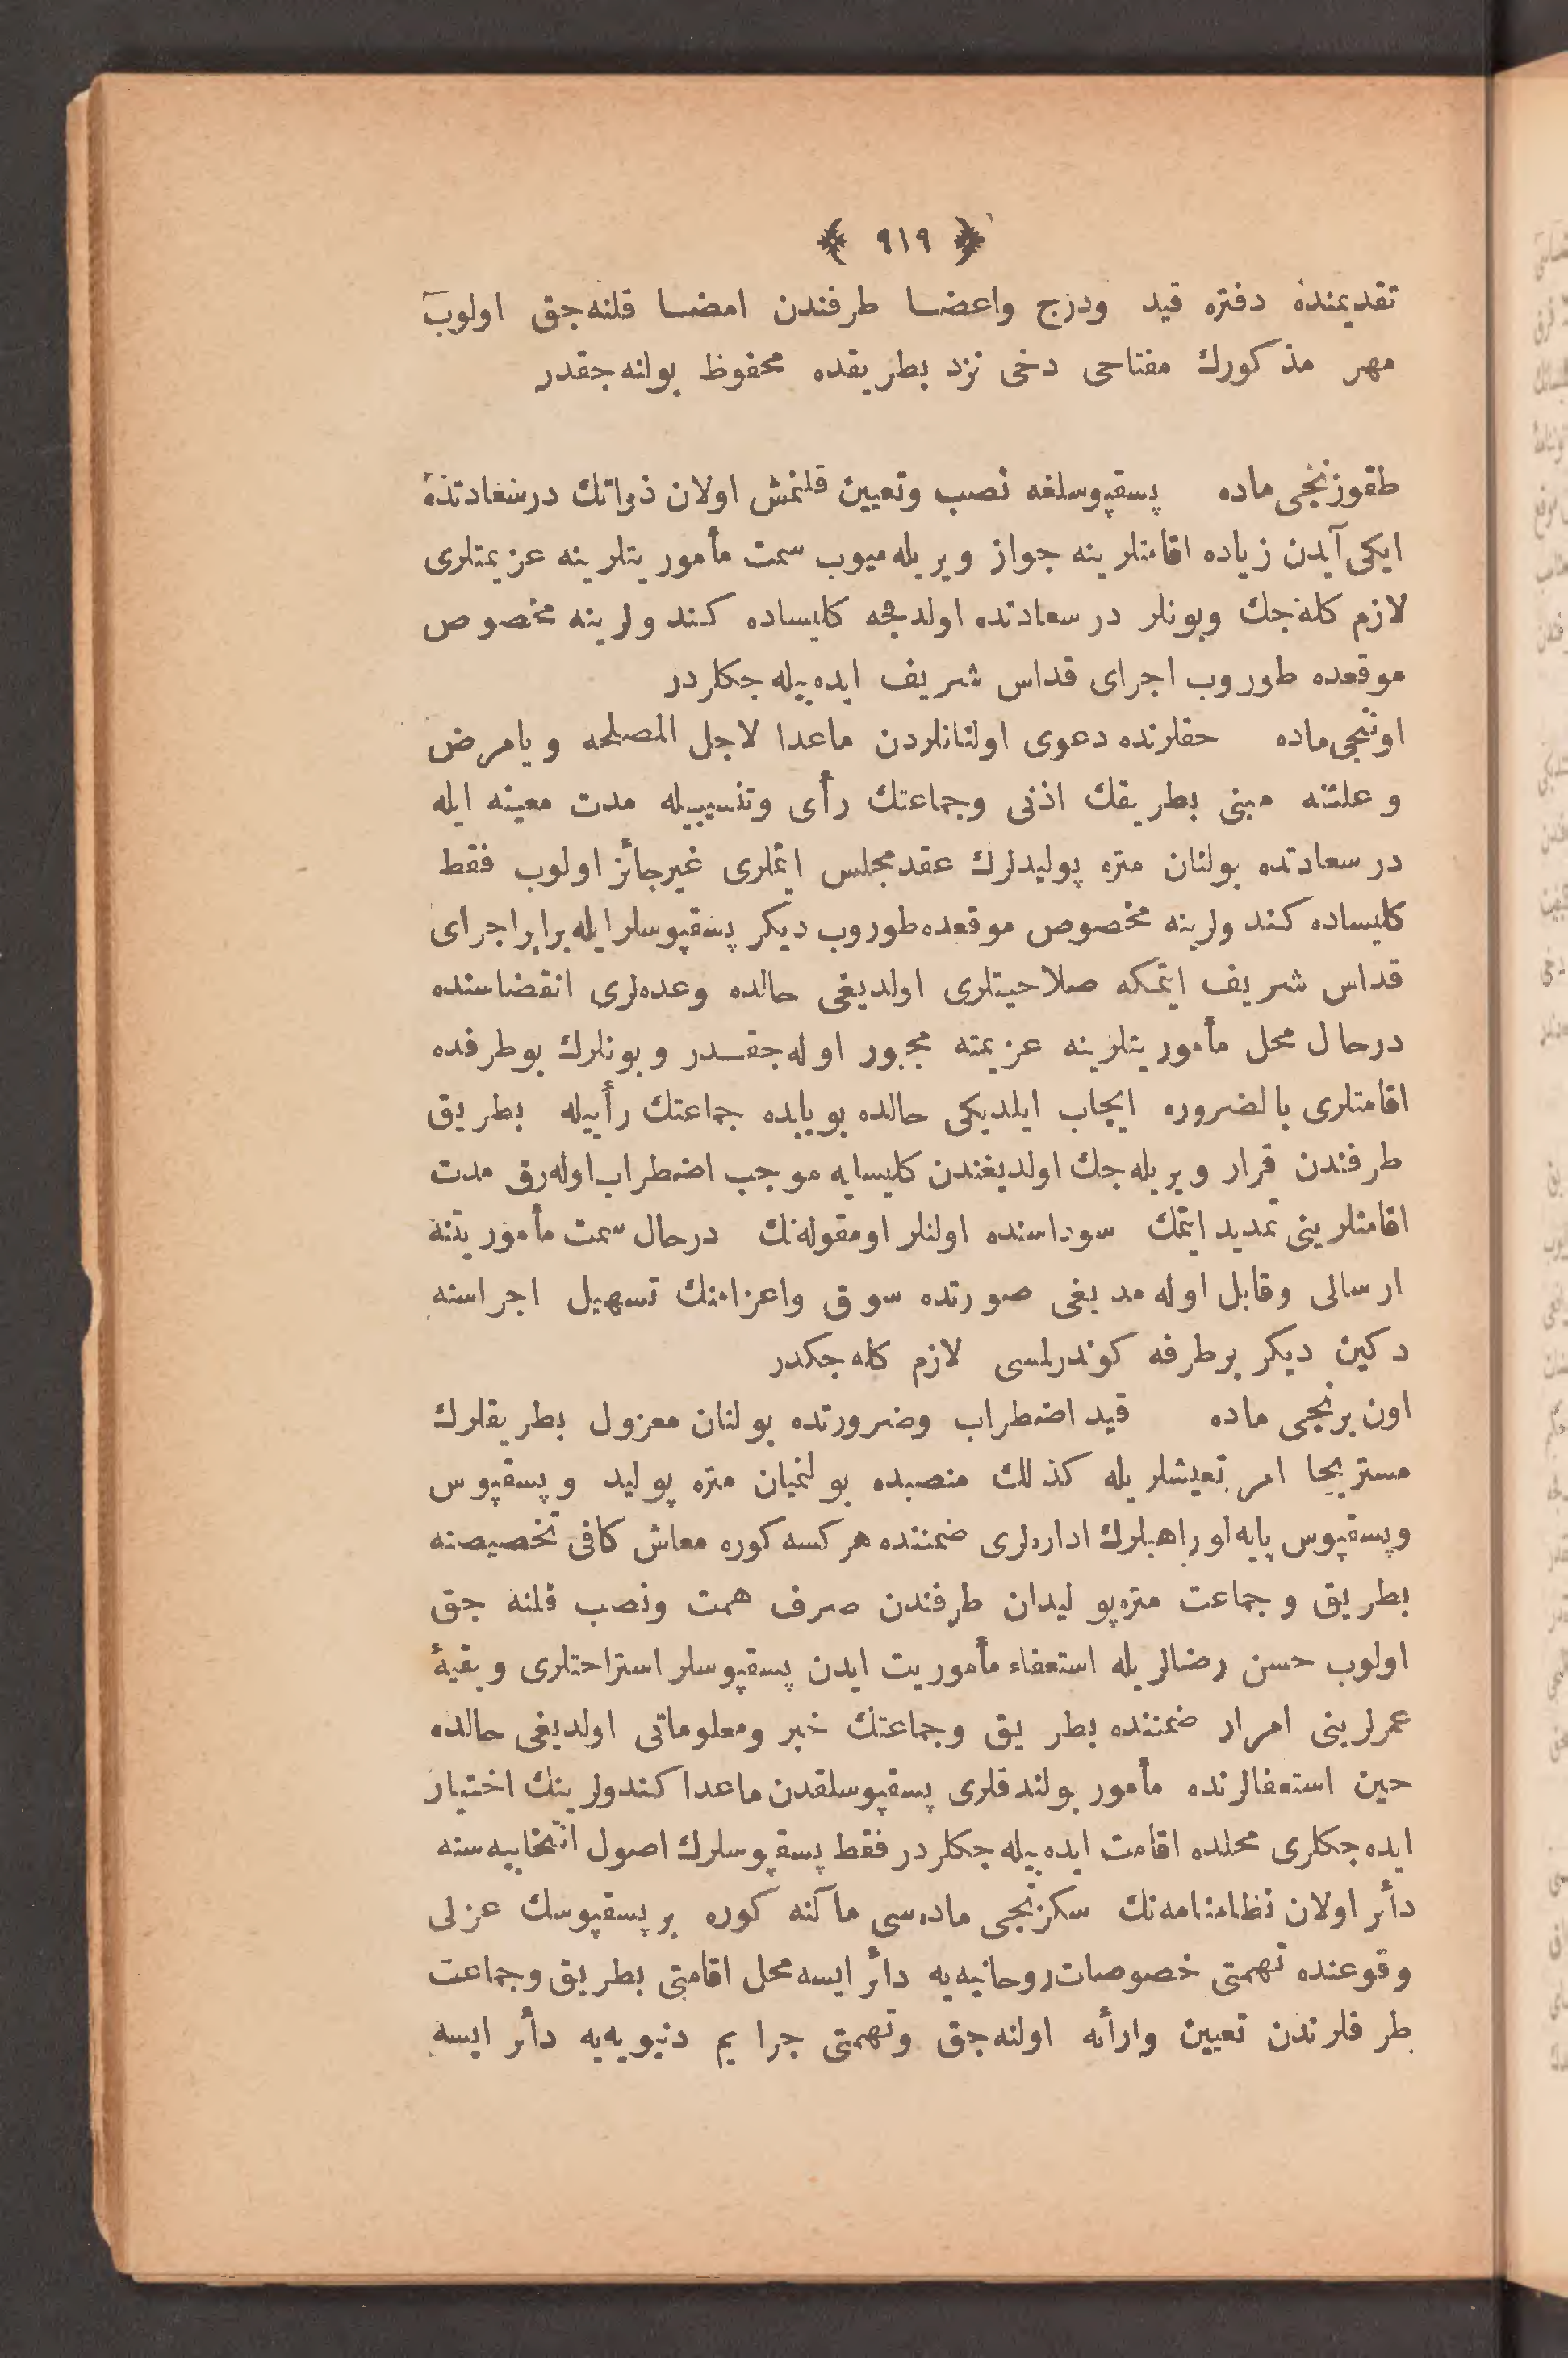 ﴿ ٩١٩ ﴾
تقديمنده دفتره قيد ودرج واعضا طرفندن امضا قلنه‌جق اولوب
مهر مذكورك مفتاحى دخى نزد بطريقده محفوظ بولنه‌جقدر
طقوزنجى ماده پسقپوسلغه نصب وتعيين قلنمش اولان ذواتك درسعادتده
ايكى آيدن زياده اقامتلرينه جواز ويريله‌ميوب سمت مأموريتلرينه عزيمتلرى
لازم كله‌جك وبونلر درسعادتده اولدجه كليساده كندولرينه مخصوص
موقعده طوروب اجراى قداس شريف ايده‌بيله‌جكلردر
اوننجى ماده حقلرنده دعوى اولنانلردن ماعدا لاجل المصلحه ويامرض
وعلتنه مبنى بطريقك اذنى وجماعتك رأى وتنسيبيله مدت معينه ايله
درسعادتده بولنان متره پوليدلرك عقدمجلس ايتملرى غيرجائز اولوب فقط
كليساده كندولرينه مخصوص موقعده طوروب ديكر پسقپوسلرايله برابراجراى
قداس شريف ايتمكه صلاحيتلرى اولديغى حالده وعده‌لرى انقضاسنده
درحال محل مأموريتلرينه عزيمته مجبور اوله‌جقدر وبونلرك بوطرفده
اقامتلرى بالضروره ايجاب ايلديكى حالده بوبابده جماعتك رأييله بطريق
طرفندن قرار ويريله‌جك اولديغندن كليسايه موجب اضطراب‌اوله‌رق مدت
اقامتلرينى تمديد ايتمك سوداسنده اولنلر اومقوله‌نك درحال سمت مأموريتنه
ارسالى وقابل اوله‌مديغى صورتده سوق واعزامنك تسهيل اجراسنه
دكين ديكر برطرفه كوندرلمسى لازم كله‌جكدر
اون برنجى ماده قيد اضطراب وضرورتده بولنان معزول بطريقلرك
مستريحا امر تعيشلريله كذلك منصبده بولنميان متره پوليد وپسقپوس
وپسقپوس پايه‌لو راهبلرك اداره‌لرى ضمننده هركسه كوره معاش كافى تخصيصنه
بطريق وجماعت متره‌پوليدان طرفندن صرف همت ونصب قلنه جق
اولوب حسن رضالريله استعفاء مأموريت ايدن پسقپوسلر استراحتلرى وبقيهٔ
عمرلرينى امرار ضمننده بطريق وجماعتك خبر ومعلوماتى اولديغى حالده
حين استعفالرنده مأمور بولندقلرى پسقپوسلقدن ماعدا كندولرينك اختيار
ايده‌جكلرى محلده اقامت ايده‌بيله‌جكلردر فقط پسقپوسلرك اصول انتخابيه‌سنه
دائر اولان نظامنامه‌نك سكزنجى ماده‌سى مآلنه كوره بر پسقپوسك عزلى
وقوعنده تهمتى خصوصات‌روحانيه‌يه دائر ايسه محل اقامتى بطريق وجماعت
طرفلرندن تعيين وارأئه اولنه‌جق وتهمتى جرايم دنيويه‌يه دائر ايسه